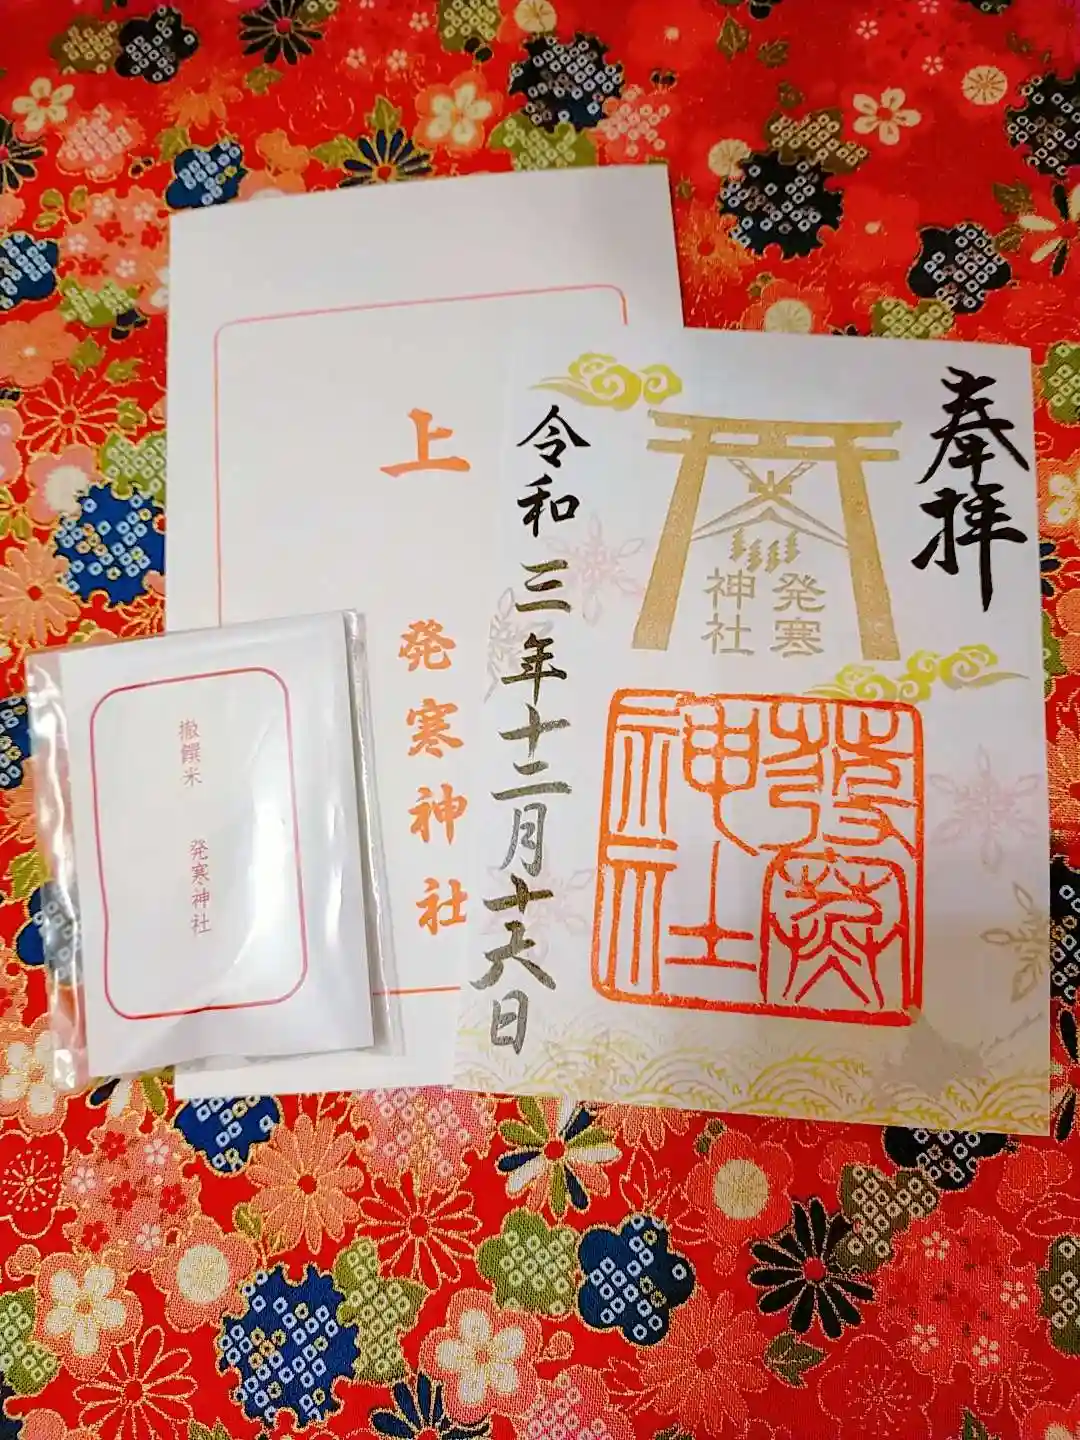 奉拝
発寒
神社
發寒
神社
令和三年十二月十六日
上
発寒神社
撤饌米
発寒神社